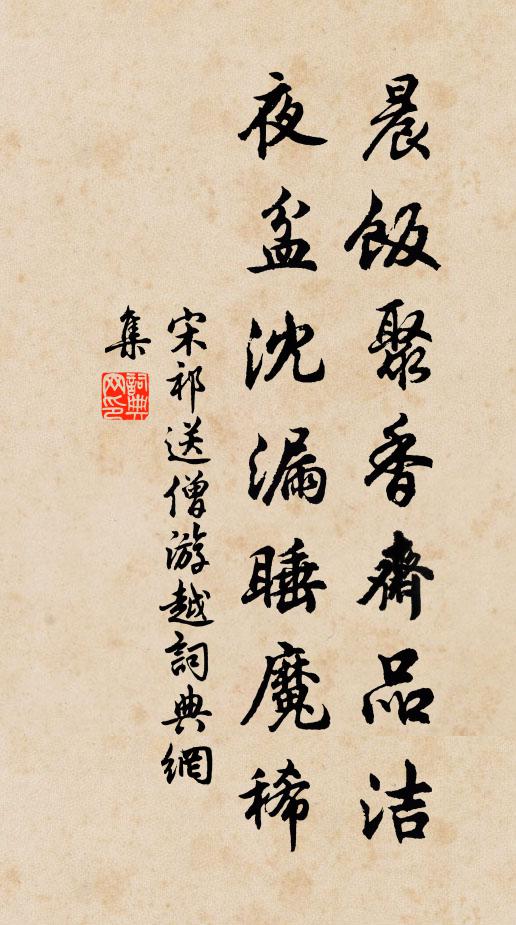 晨飯聚香齋品洁
夜盆沈漏睡魔稀
宋祁送僧游越詞典網
集
詞典
网印